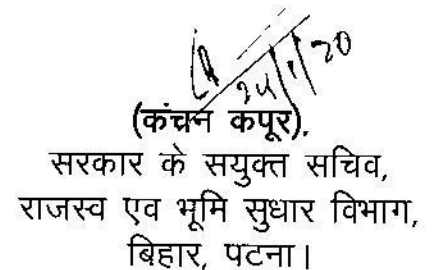 24/1/20
(कंचन कपूर),
सरकार के सयुक्त सचिव,
राजस्व एव भूमि सुधार विभाग,
बिहार, पटना।